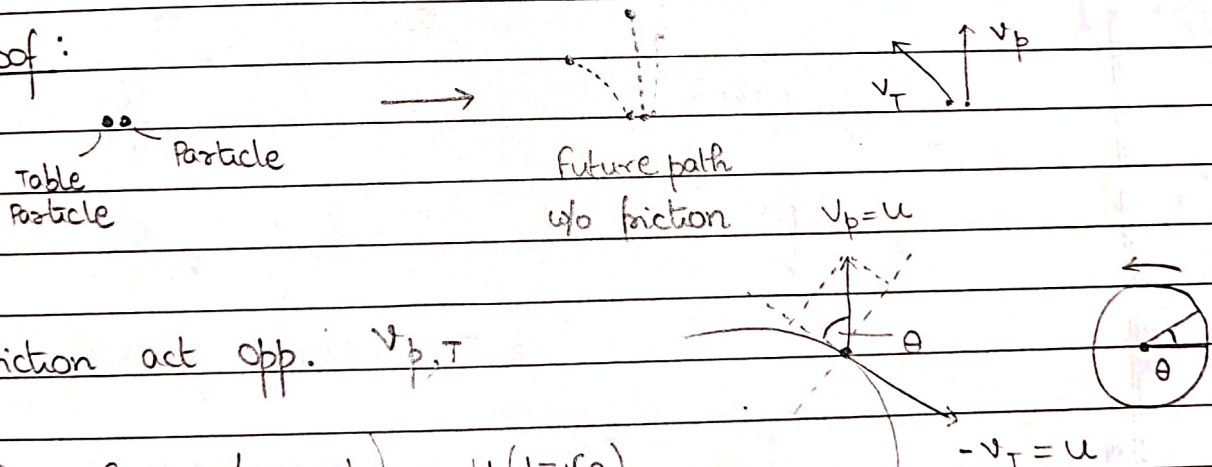 oof :
Table Particle
Particle
future path
w/o friction
v_T
v_p
v_p = u
iction act opp. v_p,T
θ
θ
- v_T = u